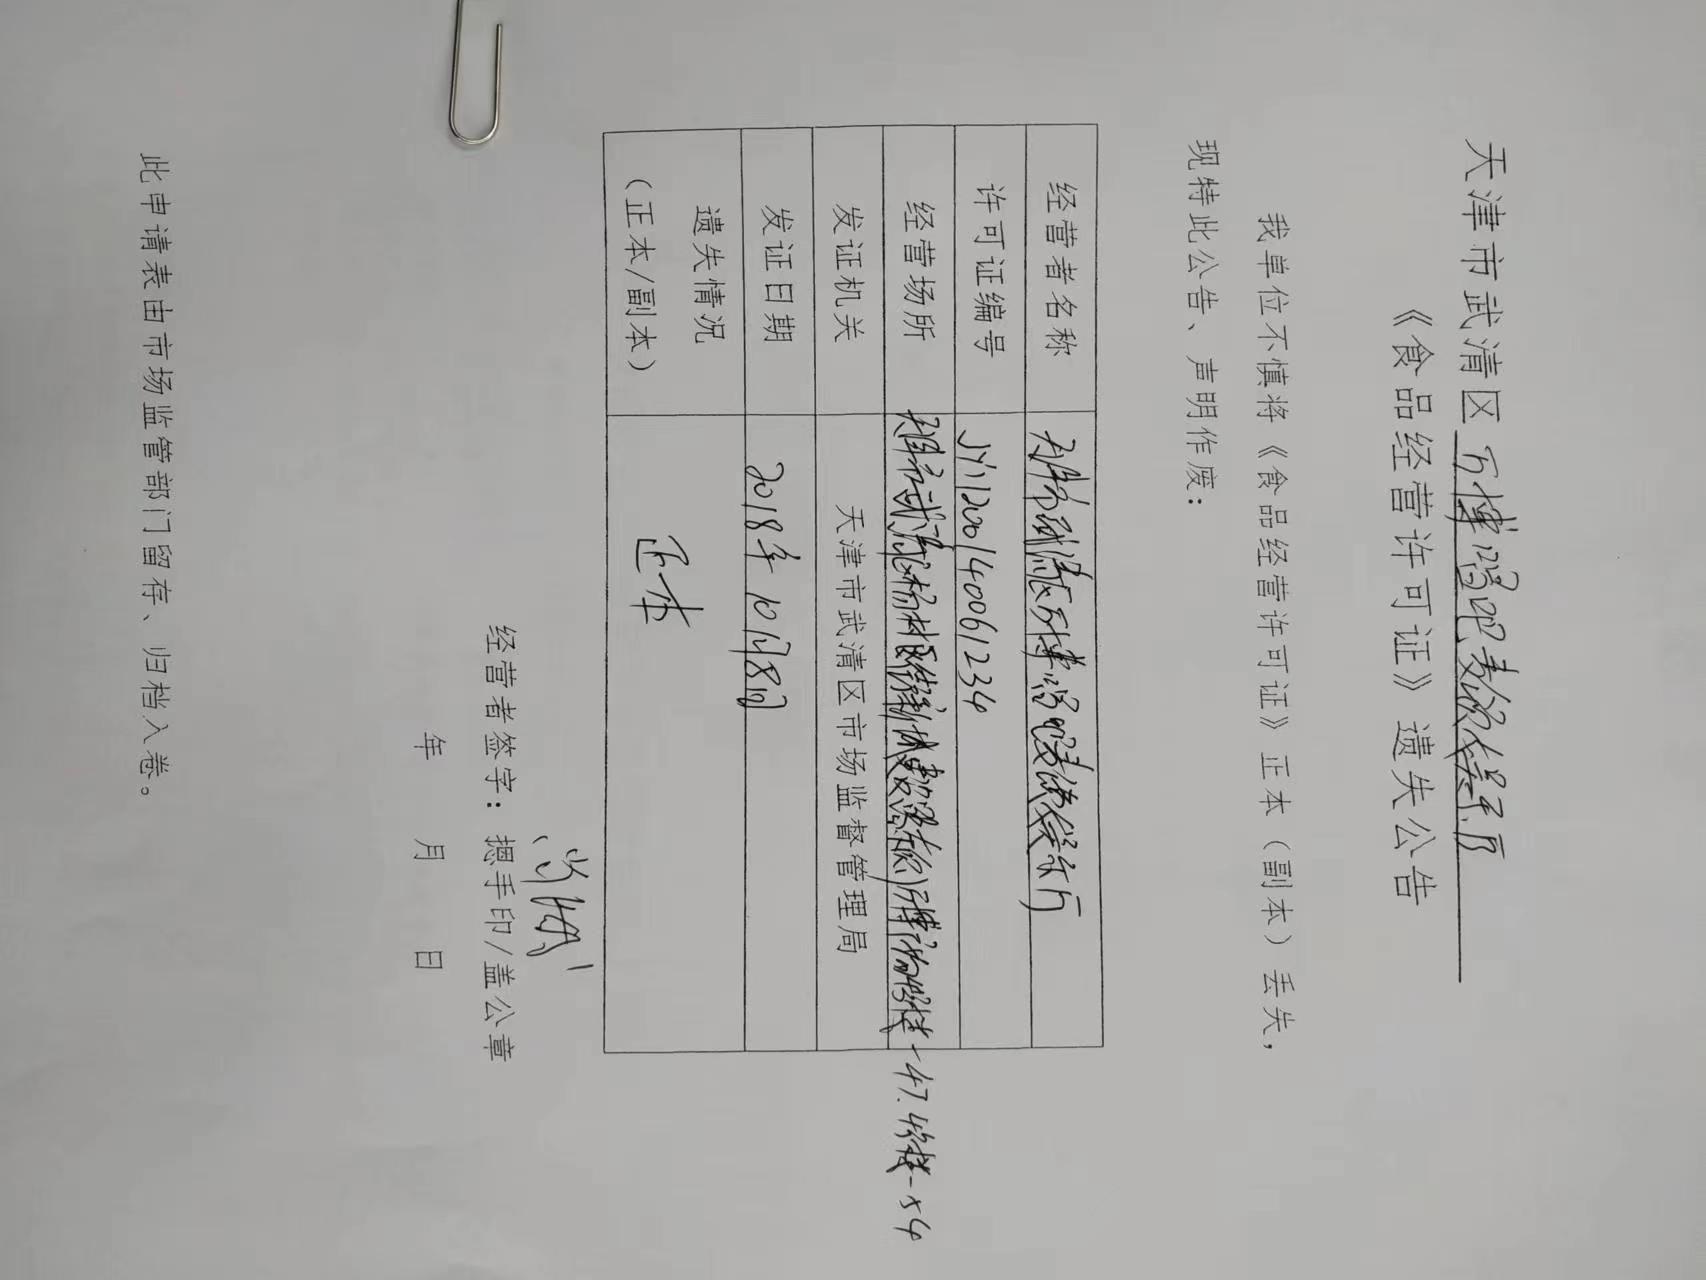 天津市武清区万博鸿吧麦颂餐厅
《食品经营许可证》遗失公告
我单位不慎将《食品经营许可证》正本（副本）丢失，
现特此公告、声明作废：
经营者名称 天津市武清区万博
许可证编号 JY11200140061234
经营场所 天津市武清区杨村
发证机关 天津市武清区市场监督管理局
发证日期 2018年10月8日
遗失情况
（正本/副本） 正本
经营者签字：摁手印/盖公章
年 月 日
此申请表由市场监管部门留存、归档入卷。